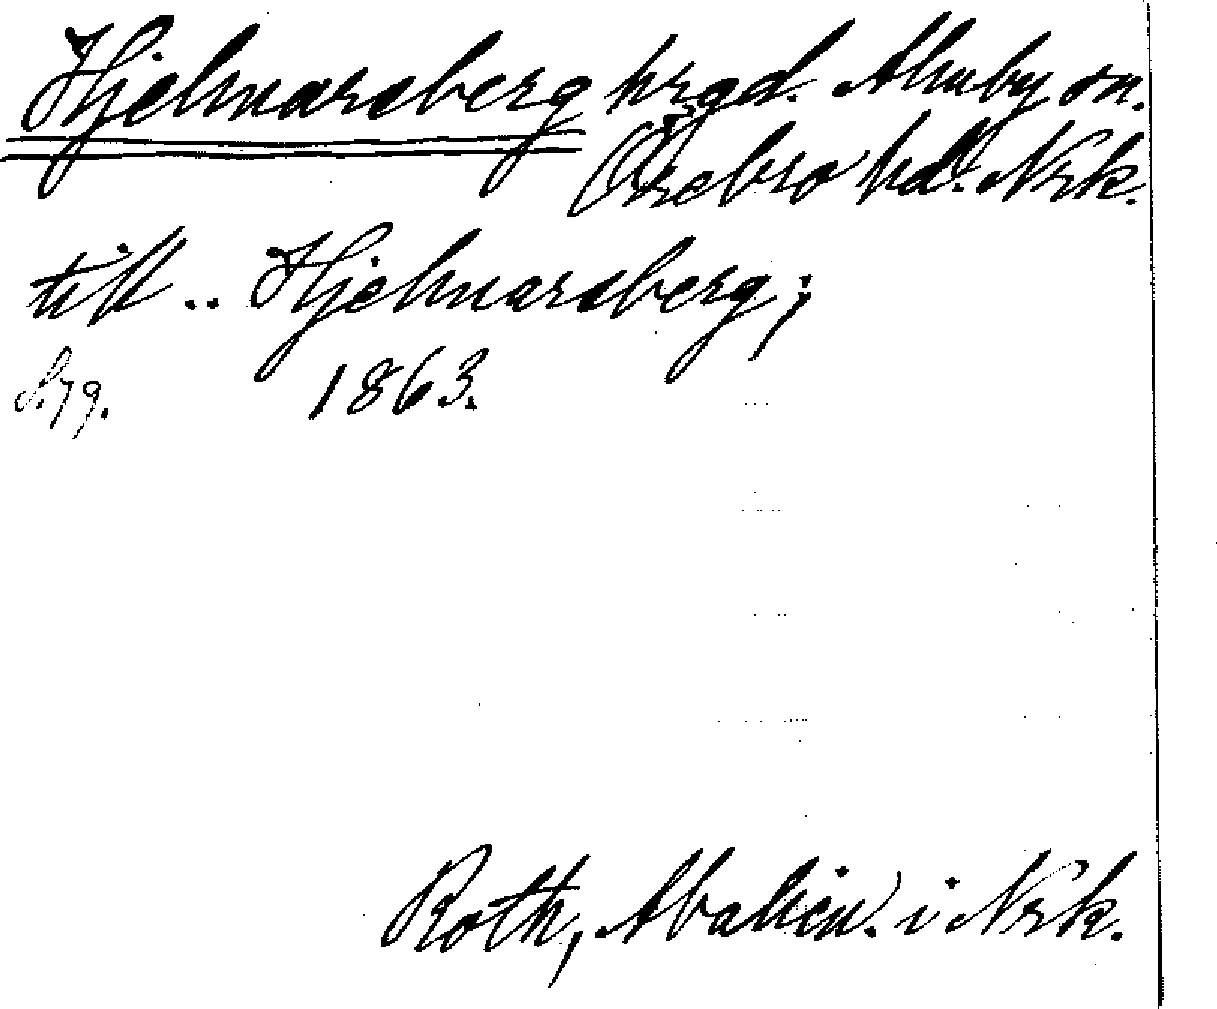 Hjelmarsberg hrgd. Almby sn.
Örebro hd. Nrk.
till .. Hjelmarsberg;
S. 79. 1863.
Roth, i Nrk.